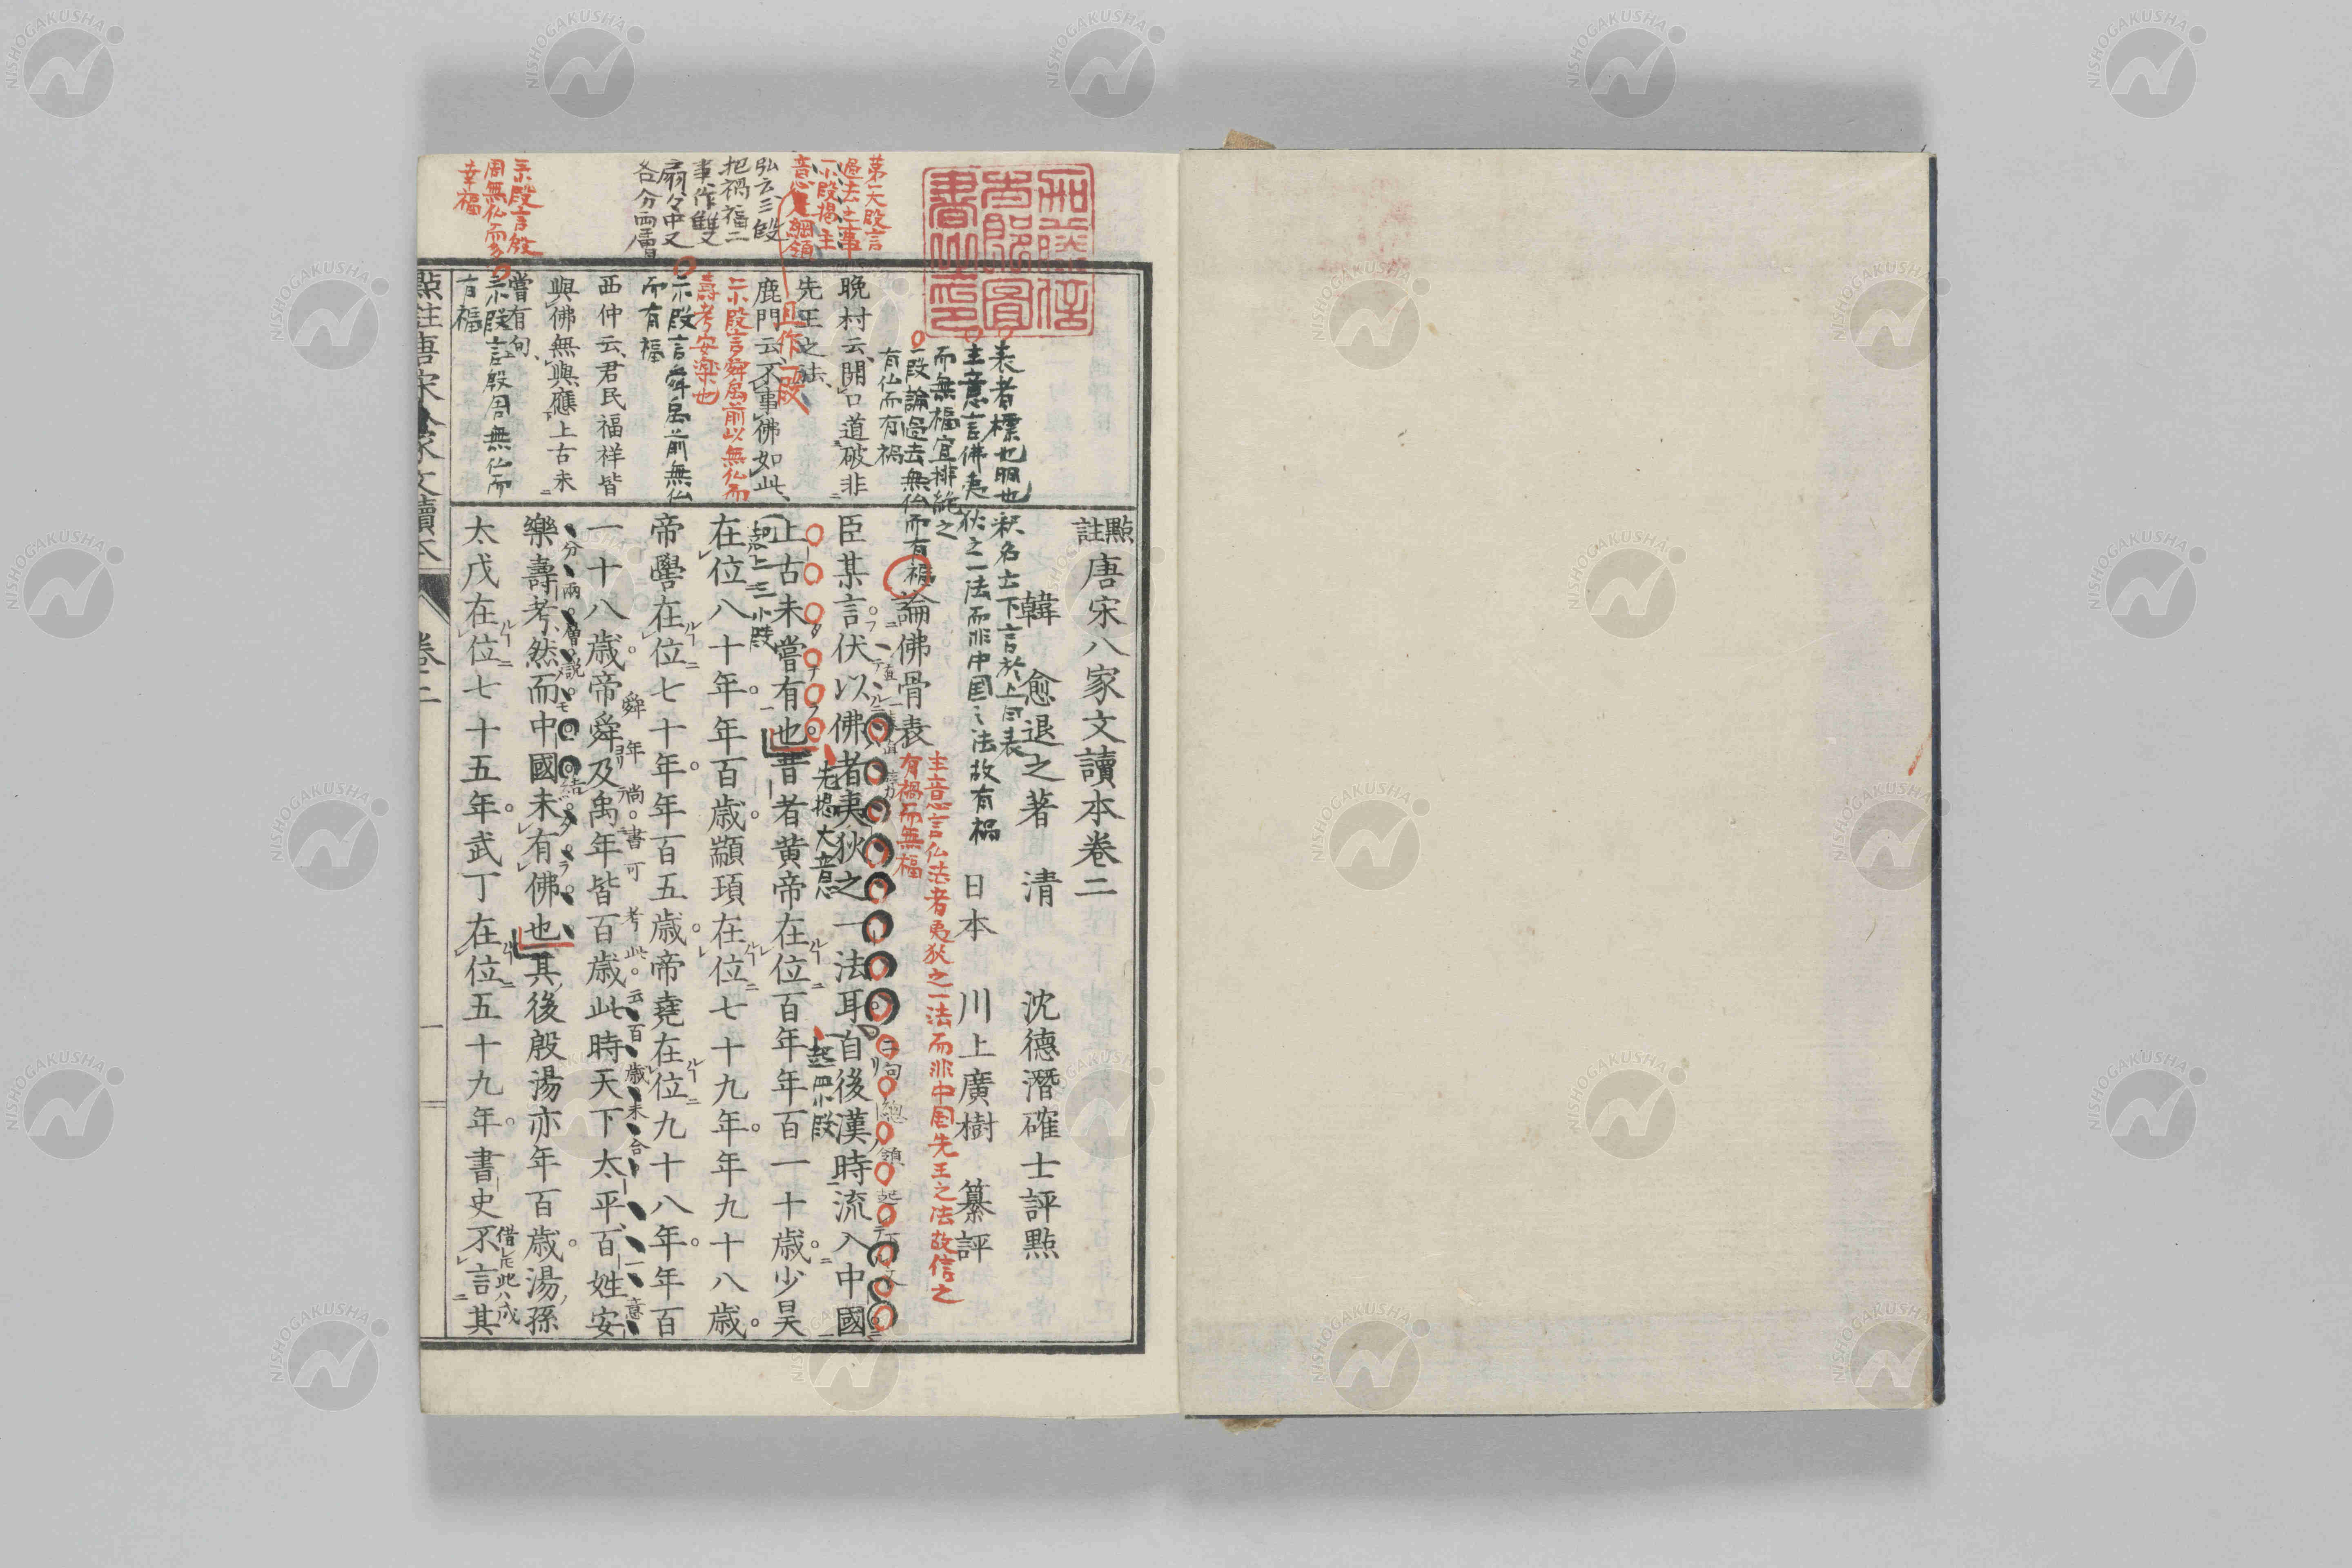 點註唐宋八家文讀本卷二
韓愈退之著 清 沈德潛確士評點
日本 川上廣樹 纂評
論佛骨表
臣某言伏以佛者夷狄之一法耳自後漢時流入中國
上古未嘗有也昔者黃帝在位百年年百一十歲少昊
在位八十年年百歲顓頊在位七十九年年九十八歲
帝嚳在位七十年年百五歲帝堯在位九十八年年百
一十八歲帝舜及禹年皆百歲此時天下太平百姓安
樂壽考然而中國未有佛也其後殷湯亦年百歲湯孫
太戊在位七十五年武丁在位五十九年書史不言其
晚村云開口道破非
先王之法、
鹿門云、不事佛如此、
西仲云、君民福祥皆
與佛無與應上古未
嘗有句、
舜年尚書可考此云百歲未合
分兩層說
先揭大意
起四小段
表者標也明也釈名士下言於上曰表
主意言佛夷狄之一法而非中国之法故有禍
而無福宜排絶之
一段論過去無仏而有福
有仏而有禍
主意言仏法者夷狄之一法而非中国先王之法故信之
有禍而無福
第一大段言
過去之事
一小段揭主
意是綱領
弘云三段
把禍福二
事作雙
扇々中又
各分両層
且作一段
示段言舜禹前以無仏而
壽考安楽也
示段言舜禹前無仏
而有福
示段言殷
周無仏而多
幸福
示段言殷周無仏而
有福
點註唐宋八家文讀本 卷二 一
NISHOGAKUSHA